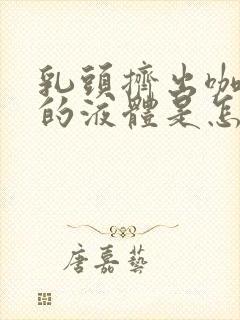 乳頭擠出咖
的液體是怎
唐嘉藝